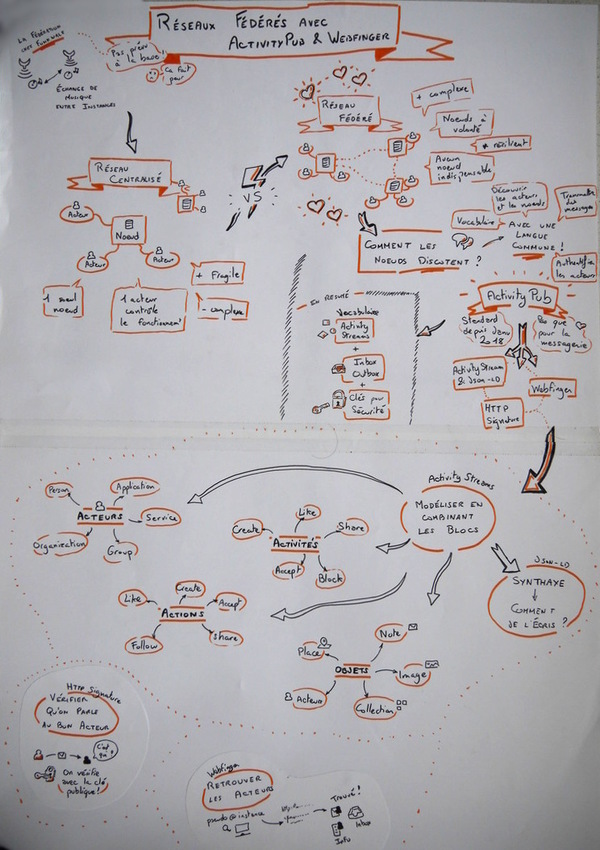 Réseaux Fédérés avec
ActivityPub & Webfinger
La Fédération
chez Funkwhale
Pas prévu
à la base
Ca fait
peur
Échange de
musique
entre instances
Réseau
Centralisé
Acteur
Noeud
Acteur
Acteur
1 seul
noeud
1 acteur
contrôle
le fonctionnement
+ Fragile
- complexe
VS
Réseau
Fédéré
+ complexe
Noeuds à
volonté
+ résilient
Aucun
noeud
indispensable
Comment les
noeuds discutent ?
Découvrir
les acteurs
et les noeuds
Transmettre
des
messages
Vocabulaire
Avec une
langue
commune !
Authentifier
les acteurs
ActivityPub
Standard
depuis Janv
2018
Pas que
pour la
messagerie
ActivityStream
& Json-LD
Webfinger
HTTP
Signature
En résumé
Vocabulaire
Activity
Streams
+
Inbox
Outbox
+
Clés pour
Sécurité
Activity Streams
Modéliser en
combinant
les blocs
Person
Application
Acteurs
Service
Organization
Group
Like
Create
Share
Activités
Accept
Block
Create
Like
Accept
Actions
Follow
Share
Note
Place
Objets
Image
Acteur
Collection
Json-LD
Synthaxe
Comment
de l'écris ?
HTTP Signature
Vérifier
qu'on parle
au bon acteur
C'est
qui ?
On vérifie
avec la clé
publique !
Webfinger
Retrouver
les acteurs
pseudo@instance
Trouvé !
Inbox
Info